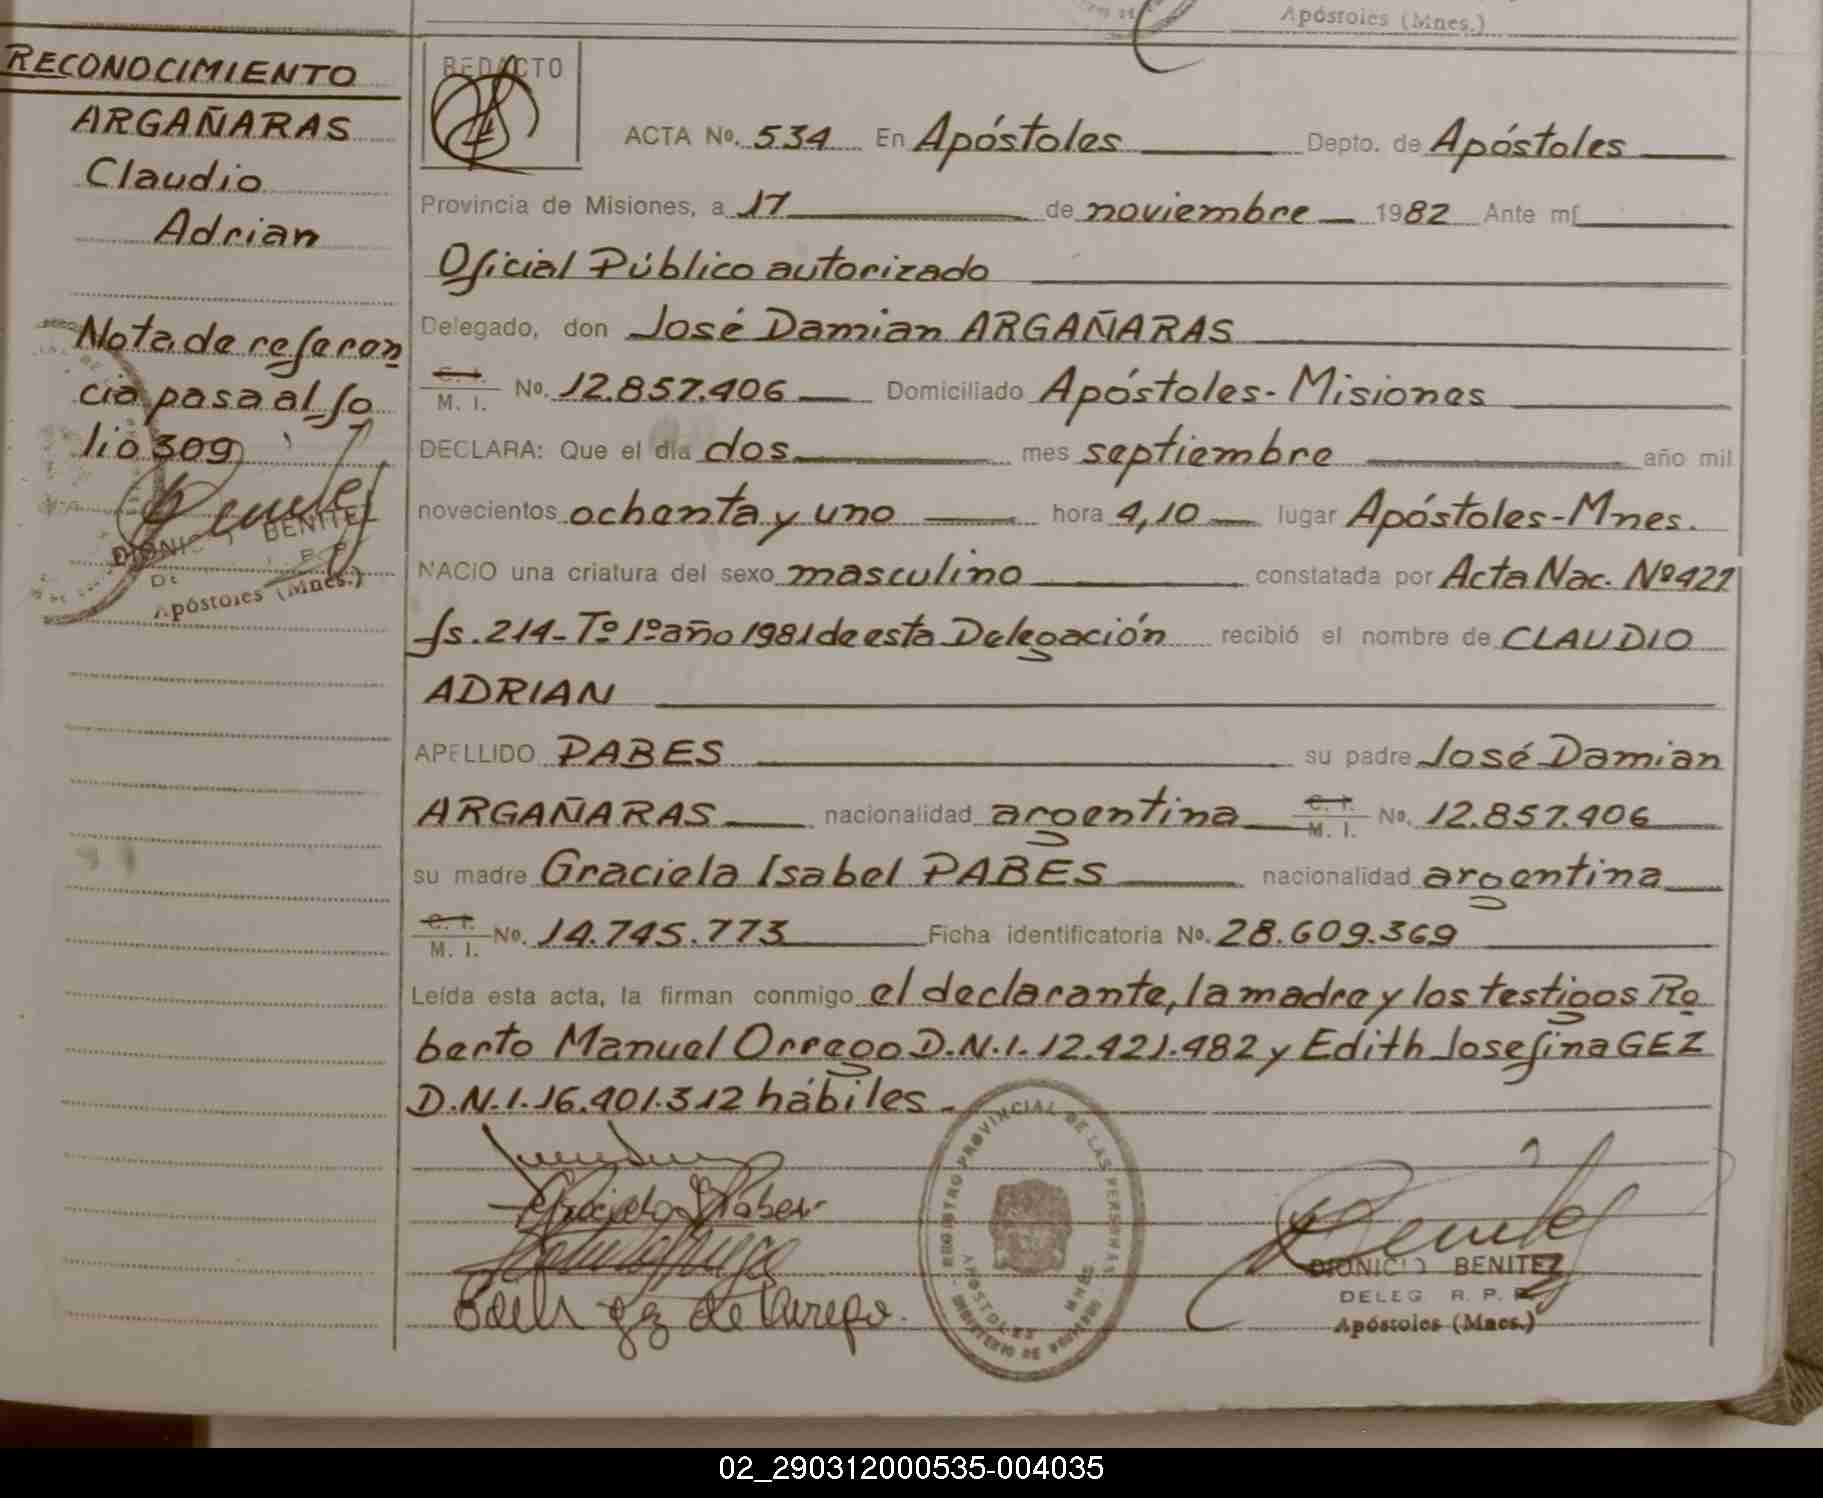 Apóstoles (Mnes.)
RECONOCIMIENTO
ARGAÑARAS
Claudio
Adrian
Nota de referen
cia pasa al fo
lio 309
DIONICIO BENITEZ
Apóstoles (Mnes.)
REDACTO
ACTA No. 534 En Apóstoles Depto. de Apóstoles
Provincia de Misiones, a 17 de noviembre 1982 Ante mí
Oficial Público autorizado
Delegado, don José Damian ARGAÑARAS
C. I. / M. I. No. 12.857.406 Domiciliado Apóstoles-Misiones
DECLARA: Que el día dos mes septiembre año mil
novecientos ochenta y uno hora 4,10 lugar Apóstoles-Mnes.
NACIO una criatura del sexo masculino constatada por Acta Nac. Nº 421
fs. 214-Tº 1º año 1981 de esta Delegación recibió el nombre de CLAUDIO
ADRIAN
APELLIDO PABES su padre José Damian
ARGAÑARAS nacionalidad argentina C. I. / M. I. No. 12.857.406
su madre Graciela Isabel PABES nacionalidad argentina
C. I. / M. I. No. 14.745.773 Ficha identificatoria No. 28.609.369
Leída esta acta, la firman conmigo el declarante, la madre y los testigos Ro
berto Manuel Orrego D.N.I. 12.421.482 y Edith Josefina GEZ
D.N.I. 16.401.312 hábiles.
REGISTRO PROVINCIAL DE LAS PERSONAS
APOSTOLES MNES.
MINISTERIO DE GOBIERNO
DIONICIO BENITEZ
DELEG R. P. P.
Apóstoles (Mnes.)
02_290312000535-004035